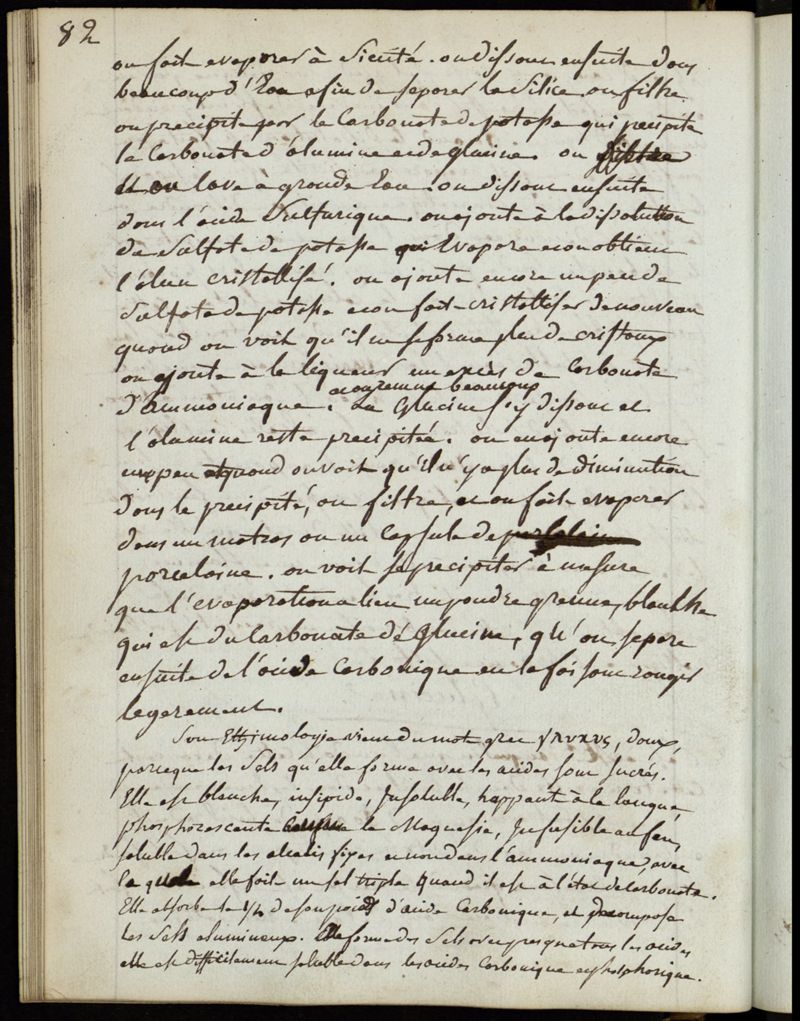 82
on fait evaporer à Siccité. on dissout ensuite dans
beaucoup d'Eau afin de separer la Silice. on filtre
on precipite par le Carbonate de potasse qui precipite
le Carbonate d'alumine et de glucine. on
et on lave à grande Eau. on dissout ensuite
dans l'acide Sulfurique. on ajoute à la dissolution
du Sulfate de potasse Evapore et on obtient
l'alun cristallisé. on ajoute encore un peu de
Sulfate de potasse et on fait cristalliser de nouveau
quand on voit qu'il ne se forme plus de cristaux
on ajoute à la liqueur un excès de Carbonate
et on remue beaucoup
d'ammoniaque. La Glucine s'y dissout et
l'alumine reste precipitée. on en ajoute encore
un peu et quand on voit qu'il n'y a plus de diminution
dans le precipité, on filtre, et on fait evaporer
dans un matras ou un capsule de
porcelaine. on voit se precipiter à mesure
que l'evaporation a lieu un poudre grenue, blanche
qui est du Carbonate de Glucine, qu'on separe
ensuite de l'acide Carbonique en la fais sant rougir
legerement.
Son Ethimologie vient du mot grec γλυκυς, doux,
parceque les Sels qu'elle forme avec les acides sont sucrés.
Elle est blanche, insipide, Insoluble, happant à la langue,
phosphorescente la Magnesie, Infusible au feu,
soluble dans les alcalis fixes et non dans l'ammoniaque, avec
le quel elle fait un sel triple quand il est à l'état de carbonate.
Elle absorbe le 1/4 de son poids d'acide Carbonique, et decompose
les Sels alumineux. Elle forme des Sels avec presque tous les acides
elle est difficilement soluble dans les acides Carbonique et phosphorique.